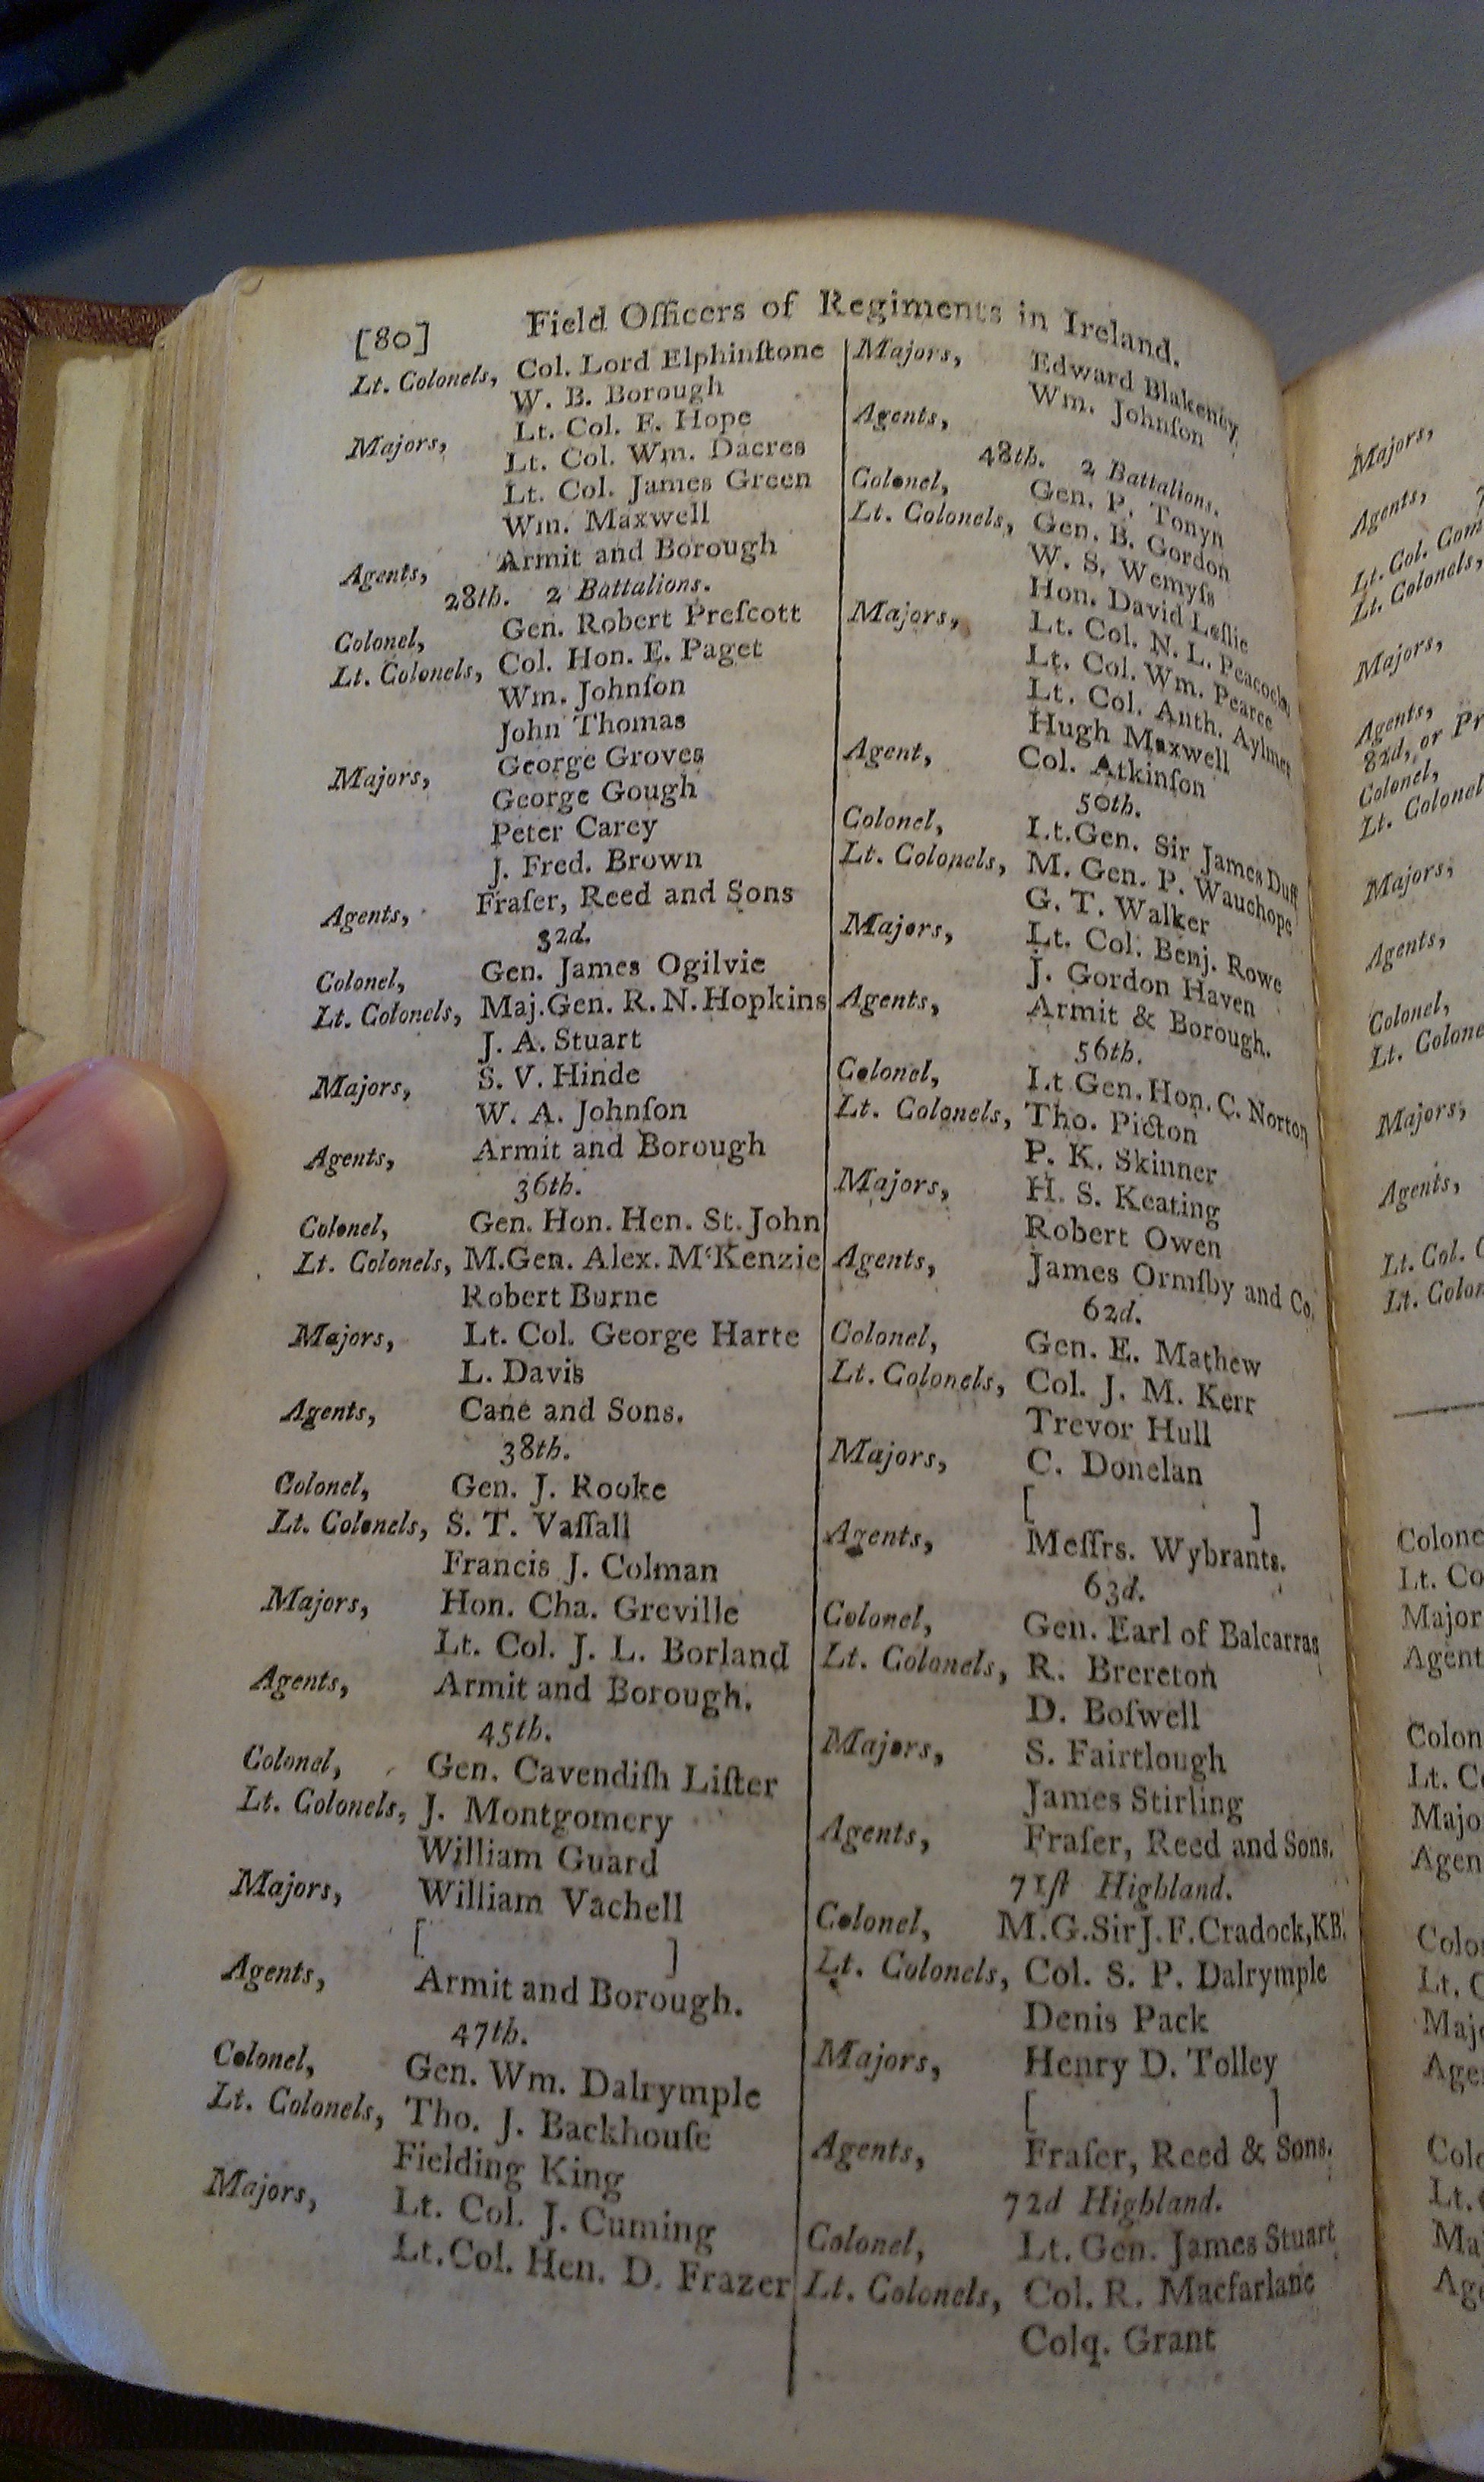 [80] Field Officers of Regiments in Ireland.
Lt. Colonels, Col. Lord Elphinſtone
W. B. Borough
Lt. Col. F. Hope
Majors, Lt. Col. Wm. Dacres
Lt. Col. James Green
Wm. Maxwell
Agents, Armit and Borough
28th. 2 Battalions.
Colonel, Gen. Robert Preſcott
Lt. Colonels, Col. Hon. E. Paget
Wm. Johnſon
John Thomas
Majors, George Groves
George Gough
Peter Carey
J. Fred. Brown
Agents, Fraſer, Reed and Sons
32d.
Colonel, Gen. James Ogilvie
Lt. Colonels, Maj. Gen. R. N. Hopkins
J. A. Stuart
Majors, S. V. Hinde
W. A. Johnſon
Agents, Armit and Borough
36th.
Colonel, Gen. Hon. Hen. St. John
Lt. Colonels, M. Gen. Alex. McKenzie
Robert Burne
Majors, Lt. Col. George Harte
L. Davis
Agents, Cane and Sons.
38th.
Colonel, Gen. J. Rooke
Lt. Colonels, S. T. Vaſſall
Francis J. Colman
Majors, Hon. Cha. Greville
Lt. Col. J. L. Borland
Agents, Armit and Borough.
45th.
Colonel, Gen. Cavendiſh Liſter
Lt. Colonels, J. Montgomery
William Guard
Majors, William Vachell
[ ]
Agents, Armit and Borough.
47th.
Colonel, Gen. Wm. Dalrymple
Lt. Colonels, Tho. J. Backhouſe
Fielding King
Majors, Lt. Col. J. Cuming
Lt. Col. Hen. D. Frazer
Majors, Edward Blakeney
Wm. Johnſon
Agents,
48th. 2 Battalions.
Colonel, Gen. P. Tonyn
Lt. Colonels, Gen. B. Gordon
W. S. Wemyſs
Hon. David Leſlie
Majors, Lt. Col. N. L. Peacocke
Lt. Col. Wm. Pearce
Lt. Col. Anth. Aylmer
Hugh Maxwell
Agent, Col. Atkinſon
50th.
Colonel, Lt. Gen. Sir James Duff
Lt. Colonels, M. Gen. P. Wauchope
G. T. Walker
Majors, Lt. Col. Benj. Rowe
J. Gordon Haven
Agents, Armit & Borough.
56th.
Colonel, Lt Gen. Hon. C. Norton
Lt. Colonels, Tho. Picton
P. K. Skinner
Majors, H. S. Keating
Robert Owen
Agents, James Ormſby and Co.
62d.
Colonel, Gen. E. Mathew
Lt. Colonels, Col. J. M. Kerr
Trevor Hull
Majors, C. Donelan
[ ]
Agents, Meſſrs. Wybrants.
63d.
Colonel, Gen. Earl of Balcarras
Lt. Colonels, R. Brereton
D. Boſwell
Majors, S. Fairtlough
James Stirling
Agents, Fraſer, Reed and Sons.
71ſt Highland.
Colonel, M. G. Sir J. F. Cradock, KB.
Lt. Colonels, Col. S. P. Dalrymple
Denis Pack
Majors, Henry D. Tolley
[ ]
Agents, Fraſer, Reed & Sons.
72d Highland.
Colonel, Lt. Gen. James Stuart
Lt. Colonels, Col. R. Macfarlane
Colq. Grant
Majors,
Agents,
Lt. Col. Com
Lt. Colonels,
Majors,
Agents,
82d, or Pr
Colonel,
Lt. Colonel
Majors,
Agents,
Colonel,
Lt. Colone
Majors,
Agents,
Lt. Col. C
Lt. Colon
Colone
Lt. Co
Major
Agent
Colon
Lt. Co
Majo
Agen
Colo
Lt. C
Majo
Age
Colo
Lt.
Ma
Age